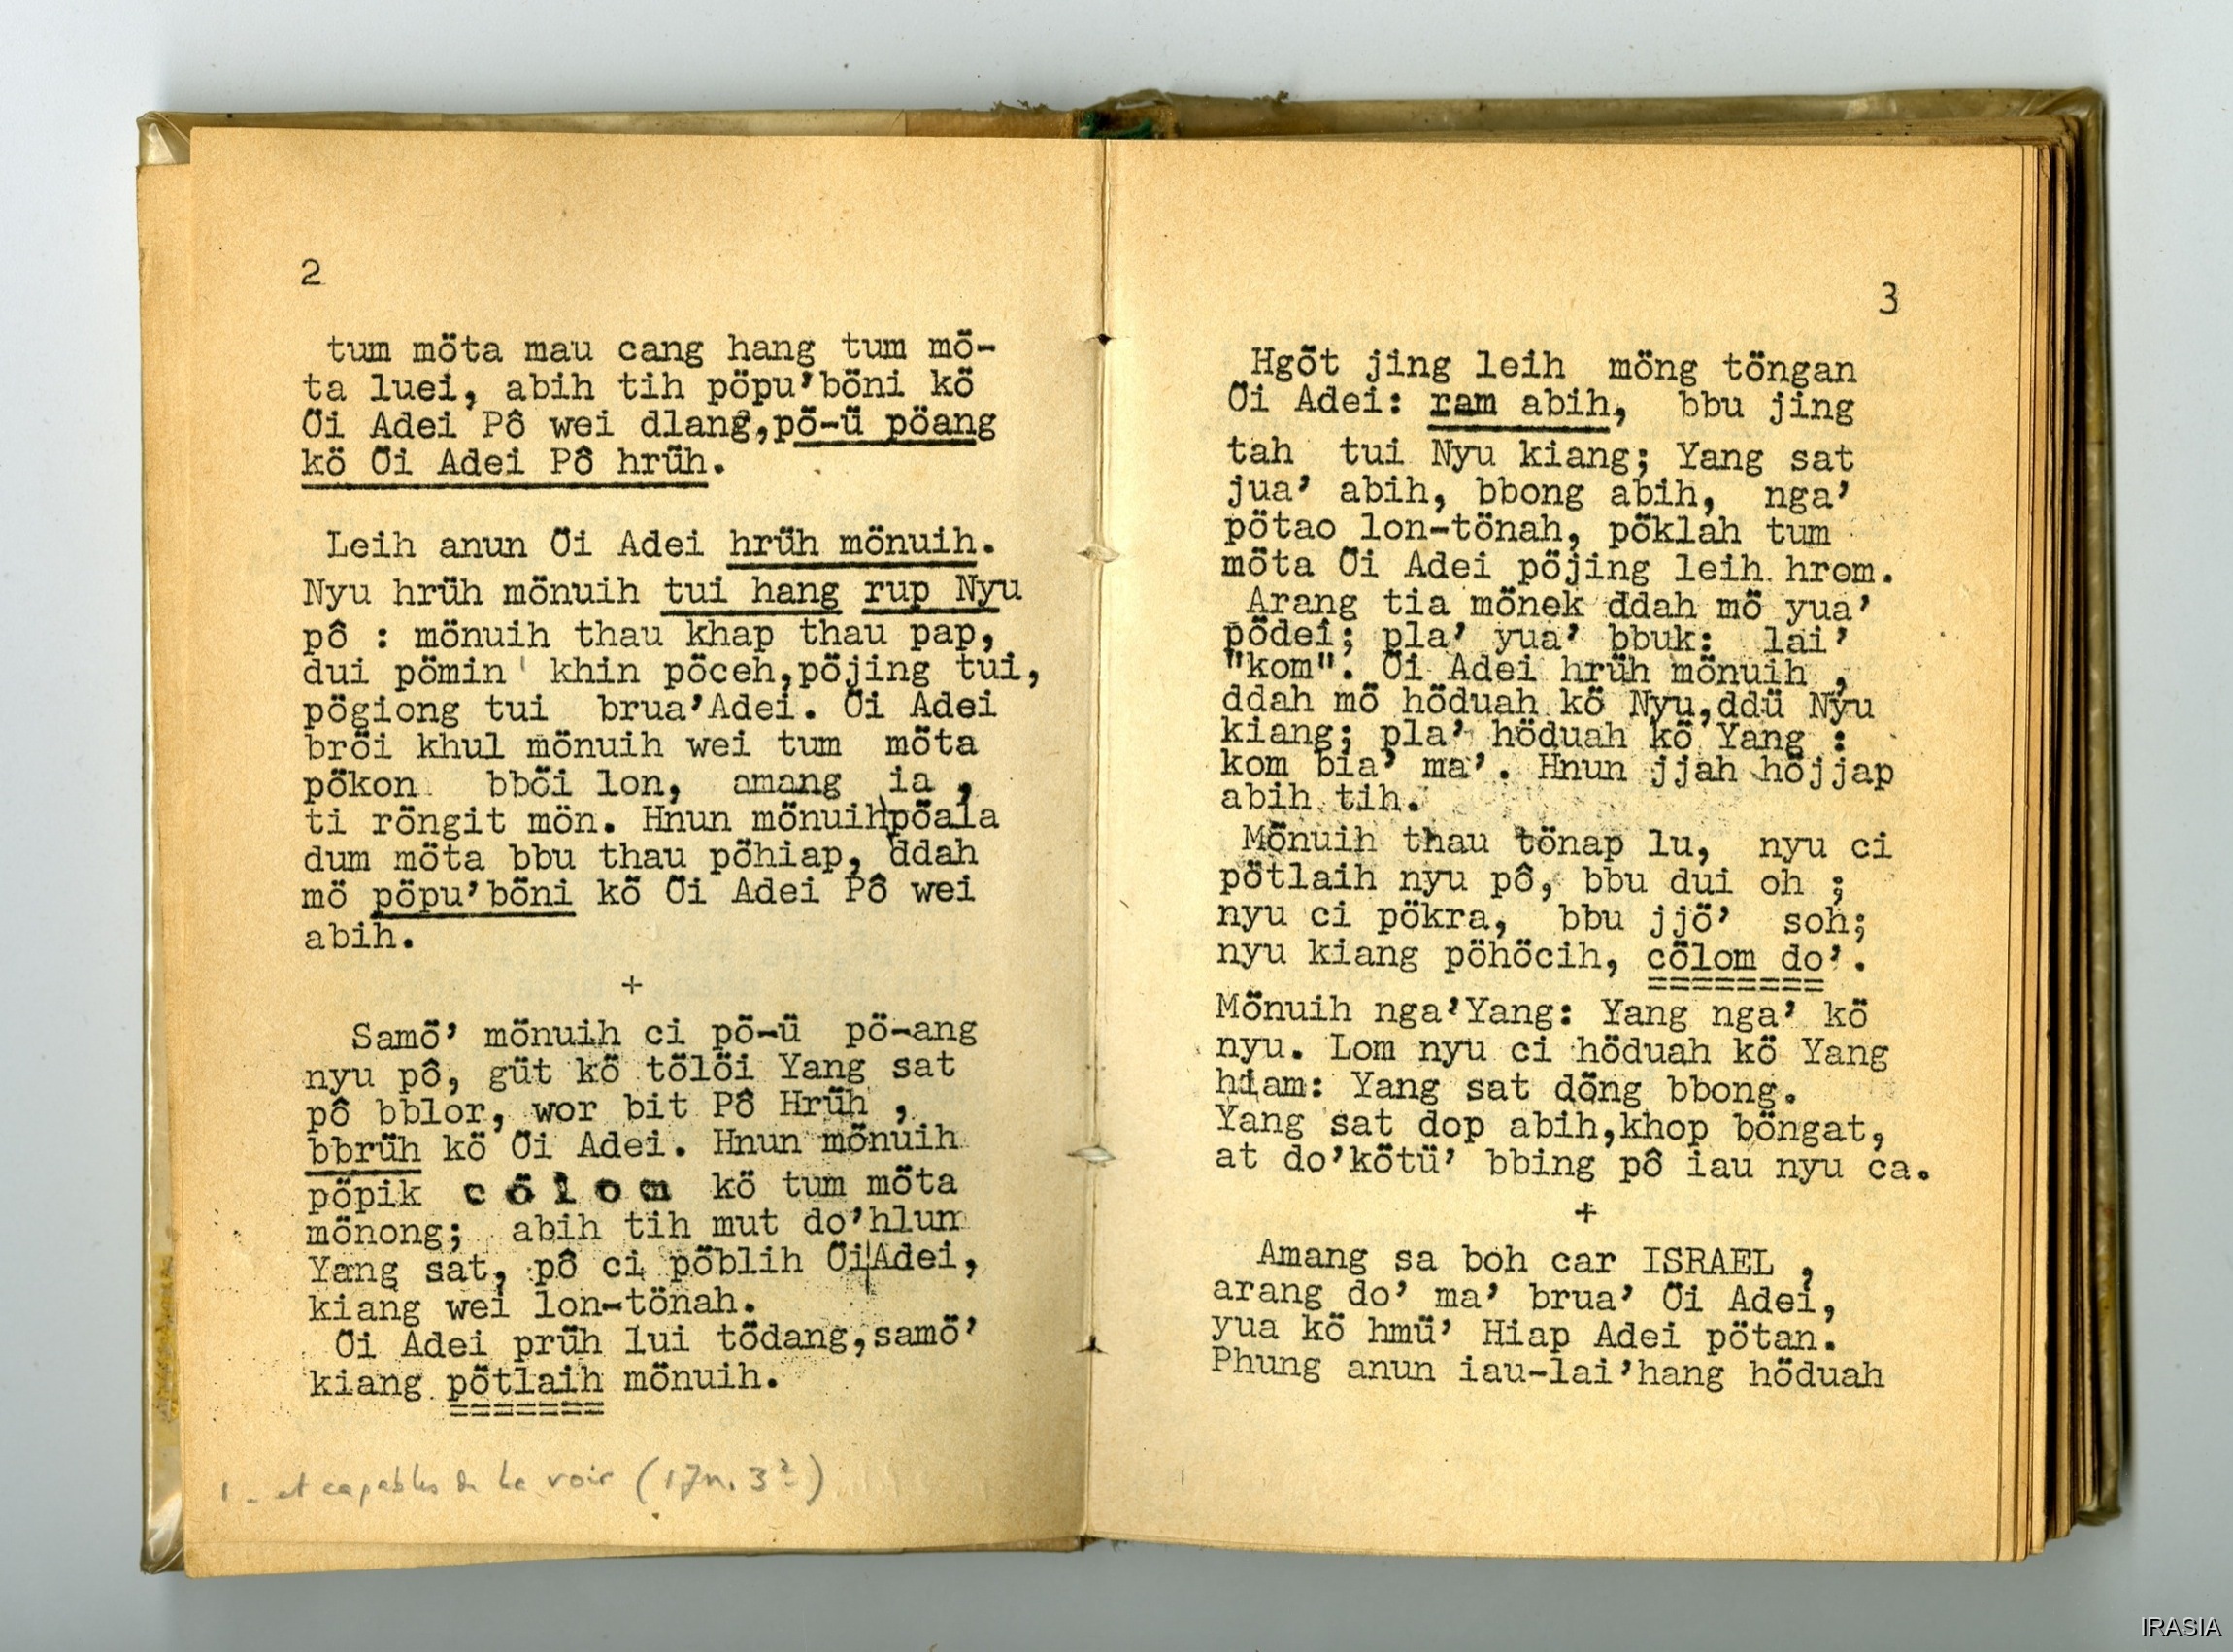 2
tum möta mau cang hang tum mö-
ta luei, abih tih pöpu’böni kö
Öi Adei Pô wei dlang,pö-ü pöang
kö Öi Adei Pô hrüh.
Leih anun Öi Adei hrüh mönuih.
Nyu hrüh mönuih tui hang rup Nyu
pô : mönuih thau khap thau pap,
dui pömin ' khin pöceh,pöjing tui,
pögiong tui brua’Adei. Öi Adei
bröi khul mönuih wei tum möta
pökon bböi lon, amang ia ,
ti röngit mön. Hnun mönuih pöala
dum möta bbu thau pöhiap, ddah
mö pöpu’böni kö Öi Adei Pô wei
abih.
+
Samö’ mönuih ci pö-ü pö-ang
nyu pô, güt kö tölöi Yang sat
pô bblor, wor bit Pô Hrüh ,
bbrüh kö Öi Adei. Hnun mönuih
pöpik cölom kö tum möta
mönong; abih tih mut do’hlun
Yang sat, pô ci pöblih Öi|Adei,
kiang wei lon-tönah.
Öi Adei prüh lui tödang,samö’
kiang pötlaih mönuih.
=======
1 - et capables de Le voir (1 Jn. 3²)
3
Hgöt jing leih möng töngan
Öi Adei: ram abih, bbu jing
tah tui Nyu kiang; Yang sat
jua’ abih, bbong abih, nga’
pötao lon-tönah, pöklah tum
möta Öi Adei pöjing leih hrom.
Arang tia mönek ddah mö yua’
pödei; pla’ yua’ bbuk: lai’
"kom". Öi Adei hrüh mönuih ,
ddah mö höduah kö Nyu,ddü Nyu
kiang; pla’ höduah kö Yang :
kom bia’ ma’. Hnun jjah höjjap
abih tih.
Mönuih thau tönap lu, nyu ci
pötlaih nyu pô, bbu dui oh ;
nyu ci pökra, bbu jjö’ soh;
nyu kiang pöhöcih, cölom do’.
========
Mönuih nga’Yang: Yang nga’ kö
nyu. Lom nyu ci höduah kö Yang
hiam: Yang sat döng bbong.
Yang sat dop abih,khop böngat,
at do’kötü’ bbing pô iau nyu ca.
+
Amang sa boh car ISRAEL ,
arang do’ ma’ brua’ Öi Adei,
yua kö hmü’ Hiap Adei pötan.
Phung anun iau-lai’hang höduah
IRASIA